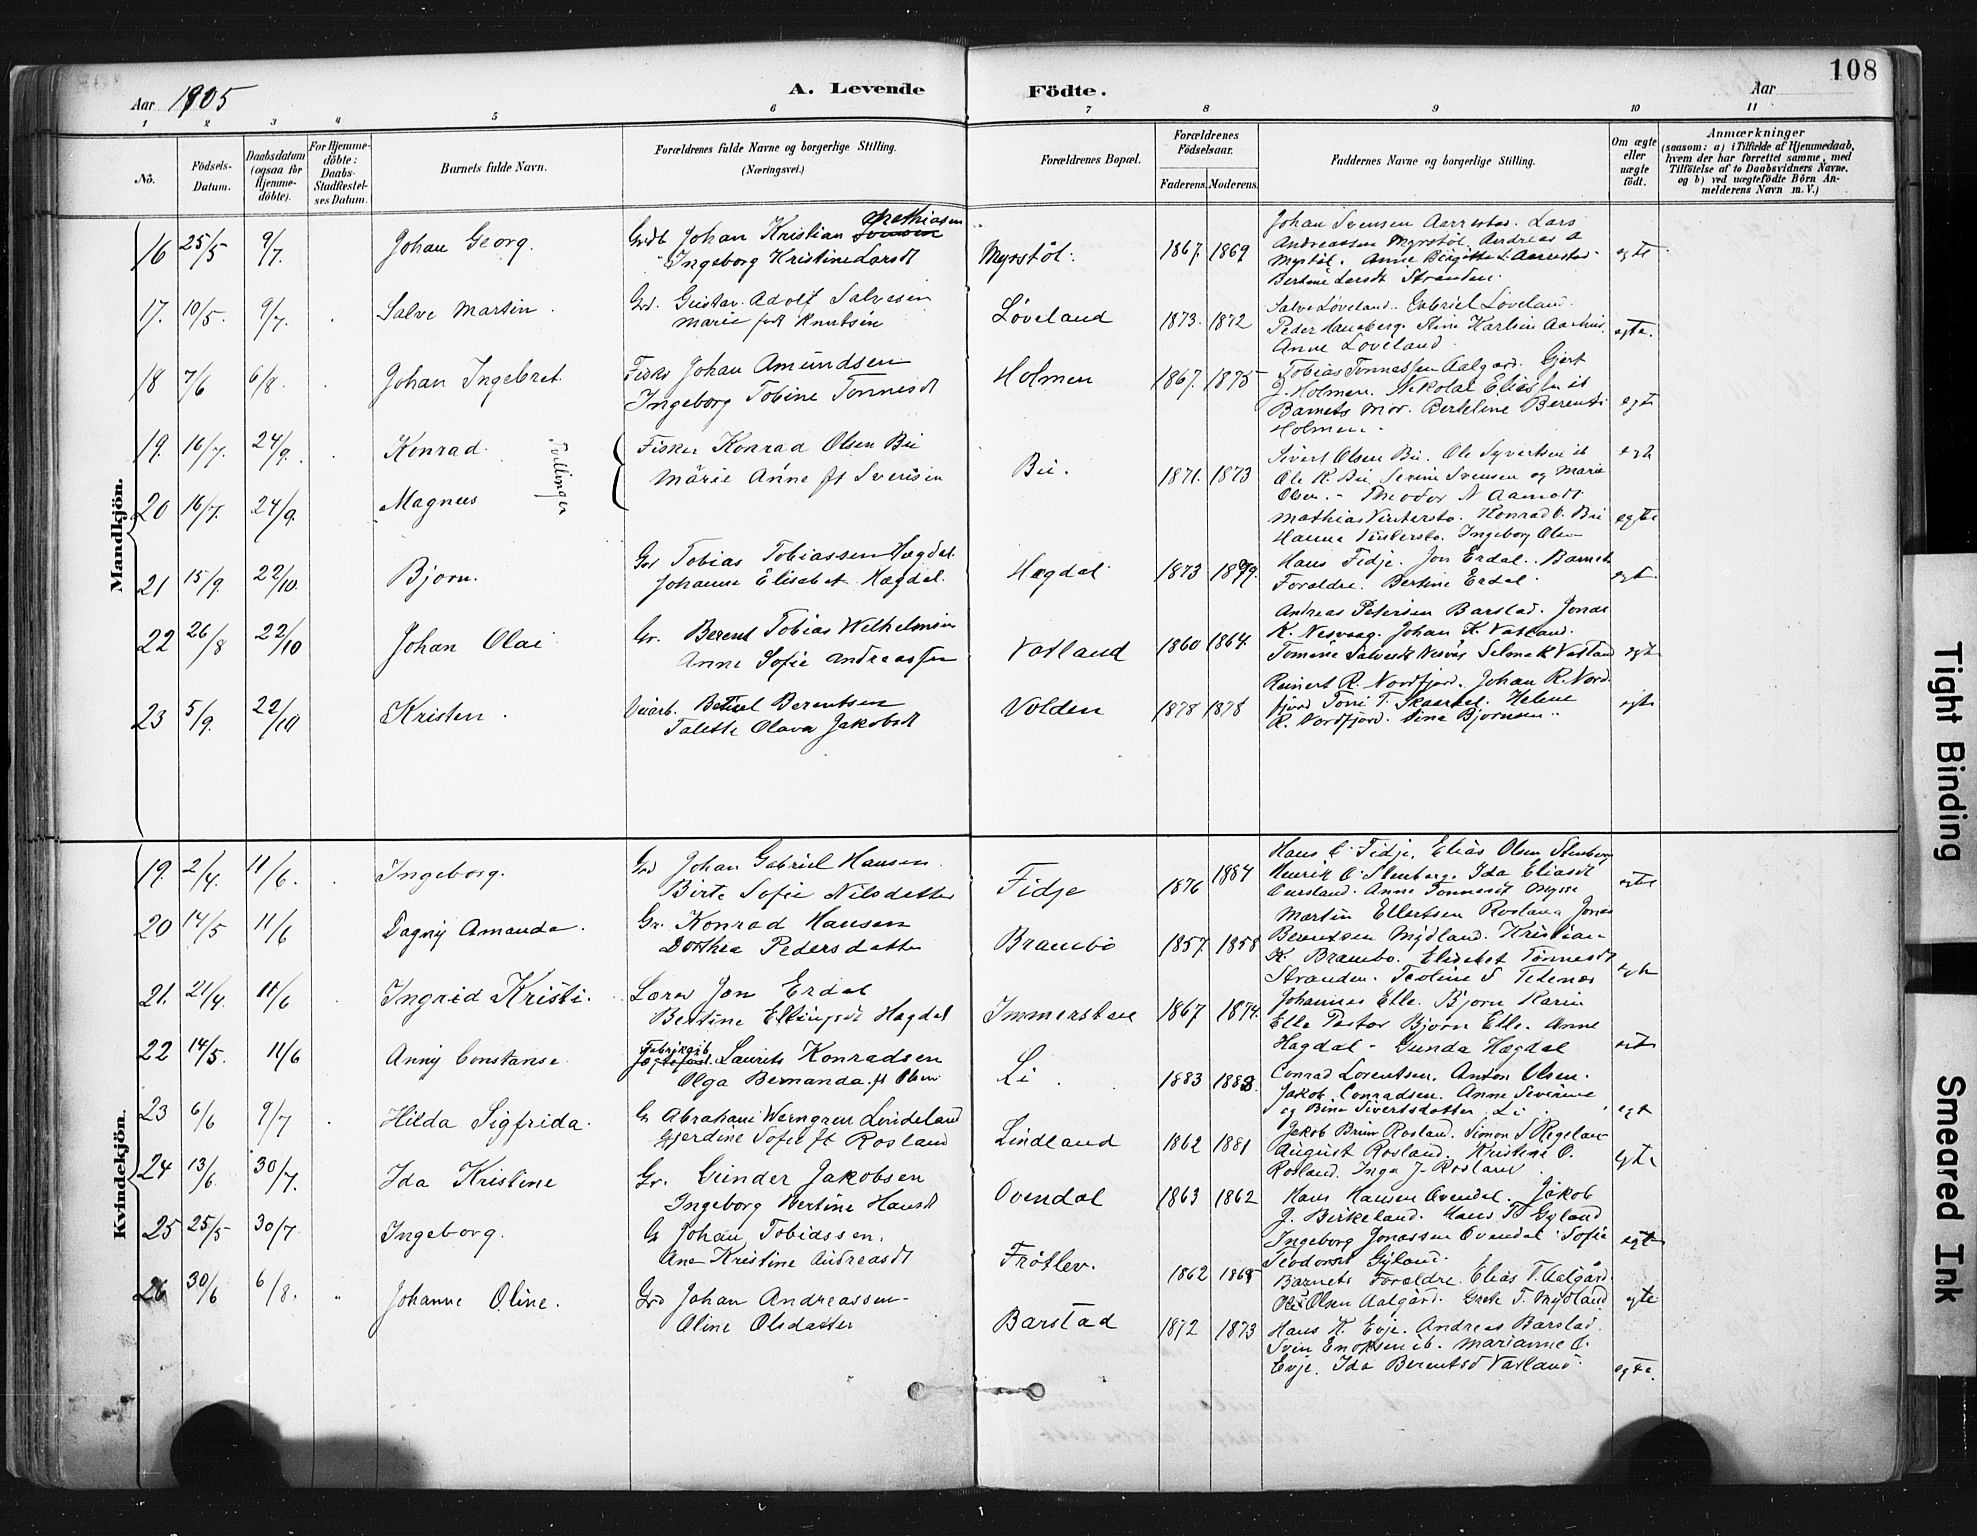 108
Aar 1905
A. Levende Födte.
Aar
1 2 3 4 5 6 7 8 9 10 11
No.
Födsels-Datum.
Daabsdatum (ogsaa for Hjemme-döbte).
For Hjemme-döbte: Daabs-Stadfæstel-ses Datum.
Barnets fulde Navn.
Forældrenes fulde Navne og borgerlige Stilling.
(Næringsvei.)
Forældrenes Bopæl.
Forældrenes Födselsaar.
Faderens. Moderens.
Faddernes Navne og borgerlige Stilling.
Om ægte eller uægte födt.
Anmærkninger
(saasom: a) i Tilfælde af Hjemmedaab, hvem der har forrettet samme, med Tilföielse af to Daabsvidners Navne, og b) ved uægtefödte Börn An-melderens Navn m. V.)
Mandkjön.
16 25/5 9/7. Johan Georg. Johan Kristian Svensen Mathiasen
Ingeborg Kristine Larsdt
Myrstøl. 1867. 1869
Johan Svensen Aarrestad. Lars
Andreassen Myrstøl. Andreas A
Myrstøl. Anne Birgitte L. Aarrestad.
Bertine Larsdt Stranden.
egte
17. 10/5. 9/7. Salve Martin. Grd. Gustav Adolf Salvesen
Marie født Knutsen
Løveland 1873. 1872
Salve Løveland. Gabriel Løveland.
Peder Hausberg. Stine Karlsen
Anne Løveland
egte.
18 7/6 6/8. Johan Ingebret. Fisk. Johan Amundsen
Ingeborg Tobine Tønnesdt
Holmen 1867. 1875
Tobias Tønnessen Aalgard. Gjert
J. Holmen. Nikolai Eliassen ib
Barnets Mor. Berteline Berents
Holmen.
egte
19. 16/7. 24/9. Konrad. Tvillinger Fisker Konrad Olsen Bu
Marie Anne ft Svensen
Bu. 1871. 1873
Sivert Olsen Bu. Ole Syvertsen ib
Ole K. Bu. Serine Svensen og Marie
Olsen. - Theodor N Aamodt.
egte
20 16/7. 24/9. Magnus
Mathias Vintersto. Konrad O. Bu
Hanna Vintersto. Ingeborg Olsen
egte
21 15/9. 22/10. Bjorn. Gr Tobias Tobiassen Hægdal.
Johanne Elisabet Hægdal.
Hægdal 1873 1879.
Hans Fidje. Jon Erdal. Barnets
Foraldre. Bertine Erdal.
egte
22 26/8 22/10 Johan Olai Gr. Berent Tobias Wilhelmsen
Anne Sofie Andreassen
Vatland 1860 1864.
Andreas Petersen Barstad. Jonas
K. Nesvaag. Johan K. Vatland.
Tomine Salvesdt Nesvåg Selma K Vatland
egte
23 5/9. 22/10 Kristen. Veiarb. Berentsen
Talette Olava Jakobsdt
Volden 1878 1878
Reinert R. Nordfjord. Johan R. Nord
fjord Toni T. Skaardal. Helene
R. Nordfjord. Sina Bjornsen
egte
Kvindekjön.
19. 2/4. 11/6. Ingeborg. Grd Johan Gabriel Hansen.
Birte Sofie Nilsdatter
Fidje 1876 1884
Hans C. Fidje. Elias Olsen Stenberg
Henrik O. Stenberg. Ida Eliasdt
Oursland. Anne Tonnesdt Mysse
egte
20 14/5 11/6 Dagny Amanda. Gr. Konrad Hansen
Dorthea Pedersdatter
Brambo 1857 1858
Martin Ellertsen Rosland Jonas
Berentsen Mydland. Kristian
K. Brambo. Elisabet Tonnesdt
Stranden. Taoline S Titenæs
egte
21. 21/4. 11/6 Ingrid Kristi. Lærer Jon Erdal
Bertine Ellingsdt Hægdal
Immerstein 1867 1874.
Johannes Elle. Bjorn Karin
Elle Pastor Bjorn Elle. Anne
Hægdal - Gunda Hægdal
egte
22 14/5. 11/6 Anny Constanse Fabrikarb. Laurits Konradsen
Olga Bernanda ft Olsen
Li. 1883 1883.
Conrad Lorentsen. Anton Olsen.
Jakob Conradsen. Anne Severine
og Bina Sivertsdatter Li.
egte
23 6/6 9/7 Hilda Sigfrida. Gr Abraham Werngren Lindeland
Gjerdine Sofie ft Rosland
Lindland 1862 1881
Jakob Bruin Rosland. Simon S Regelan
August Rosland. Kristine O.
Rosland. Inga J. Rosland
egte
24 13/6 30/7. Ida Kristine Gr. Gunder Jakobsen
Ingeborg Bertine Hansdt
Ovendal 1863 1862
Hans Hansen Ovendal. Jakob
J. Birkeland. Hans T. Gyland
Ingeborg Jonassen Ovendal. Sofie
Teodorsdt Gyland.
egte
25 25/5 30/7 Ingeborg. G Johan Tobiassen.
Ane Kristine Andreasdt
Frøtlev. 1862 1865
Barnets Foraldre. Elias T. Aalgård
Ole Olsen Aalgård. Grete T. Mydland
egte
26 30/6 6/8. " Johanne Oline. Grd Johan Andreassen
Oline Olsdatter
Barstad 1872 1873
Hans K. Evje. Andreas Barstad.
Sven Enoksen ib. Marianne O.
Evje. Ida Berentsd Vatland.
egte.
Tight Binding
Smeared Ink